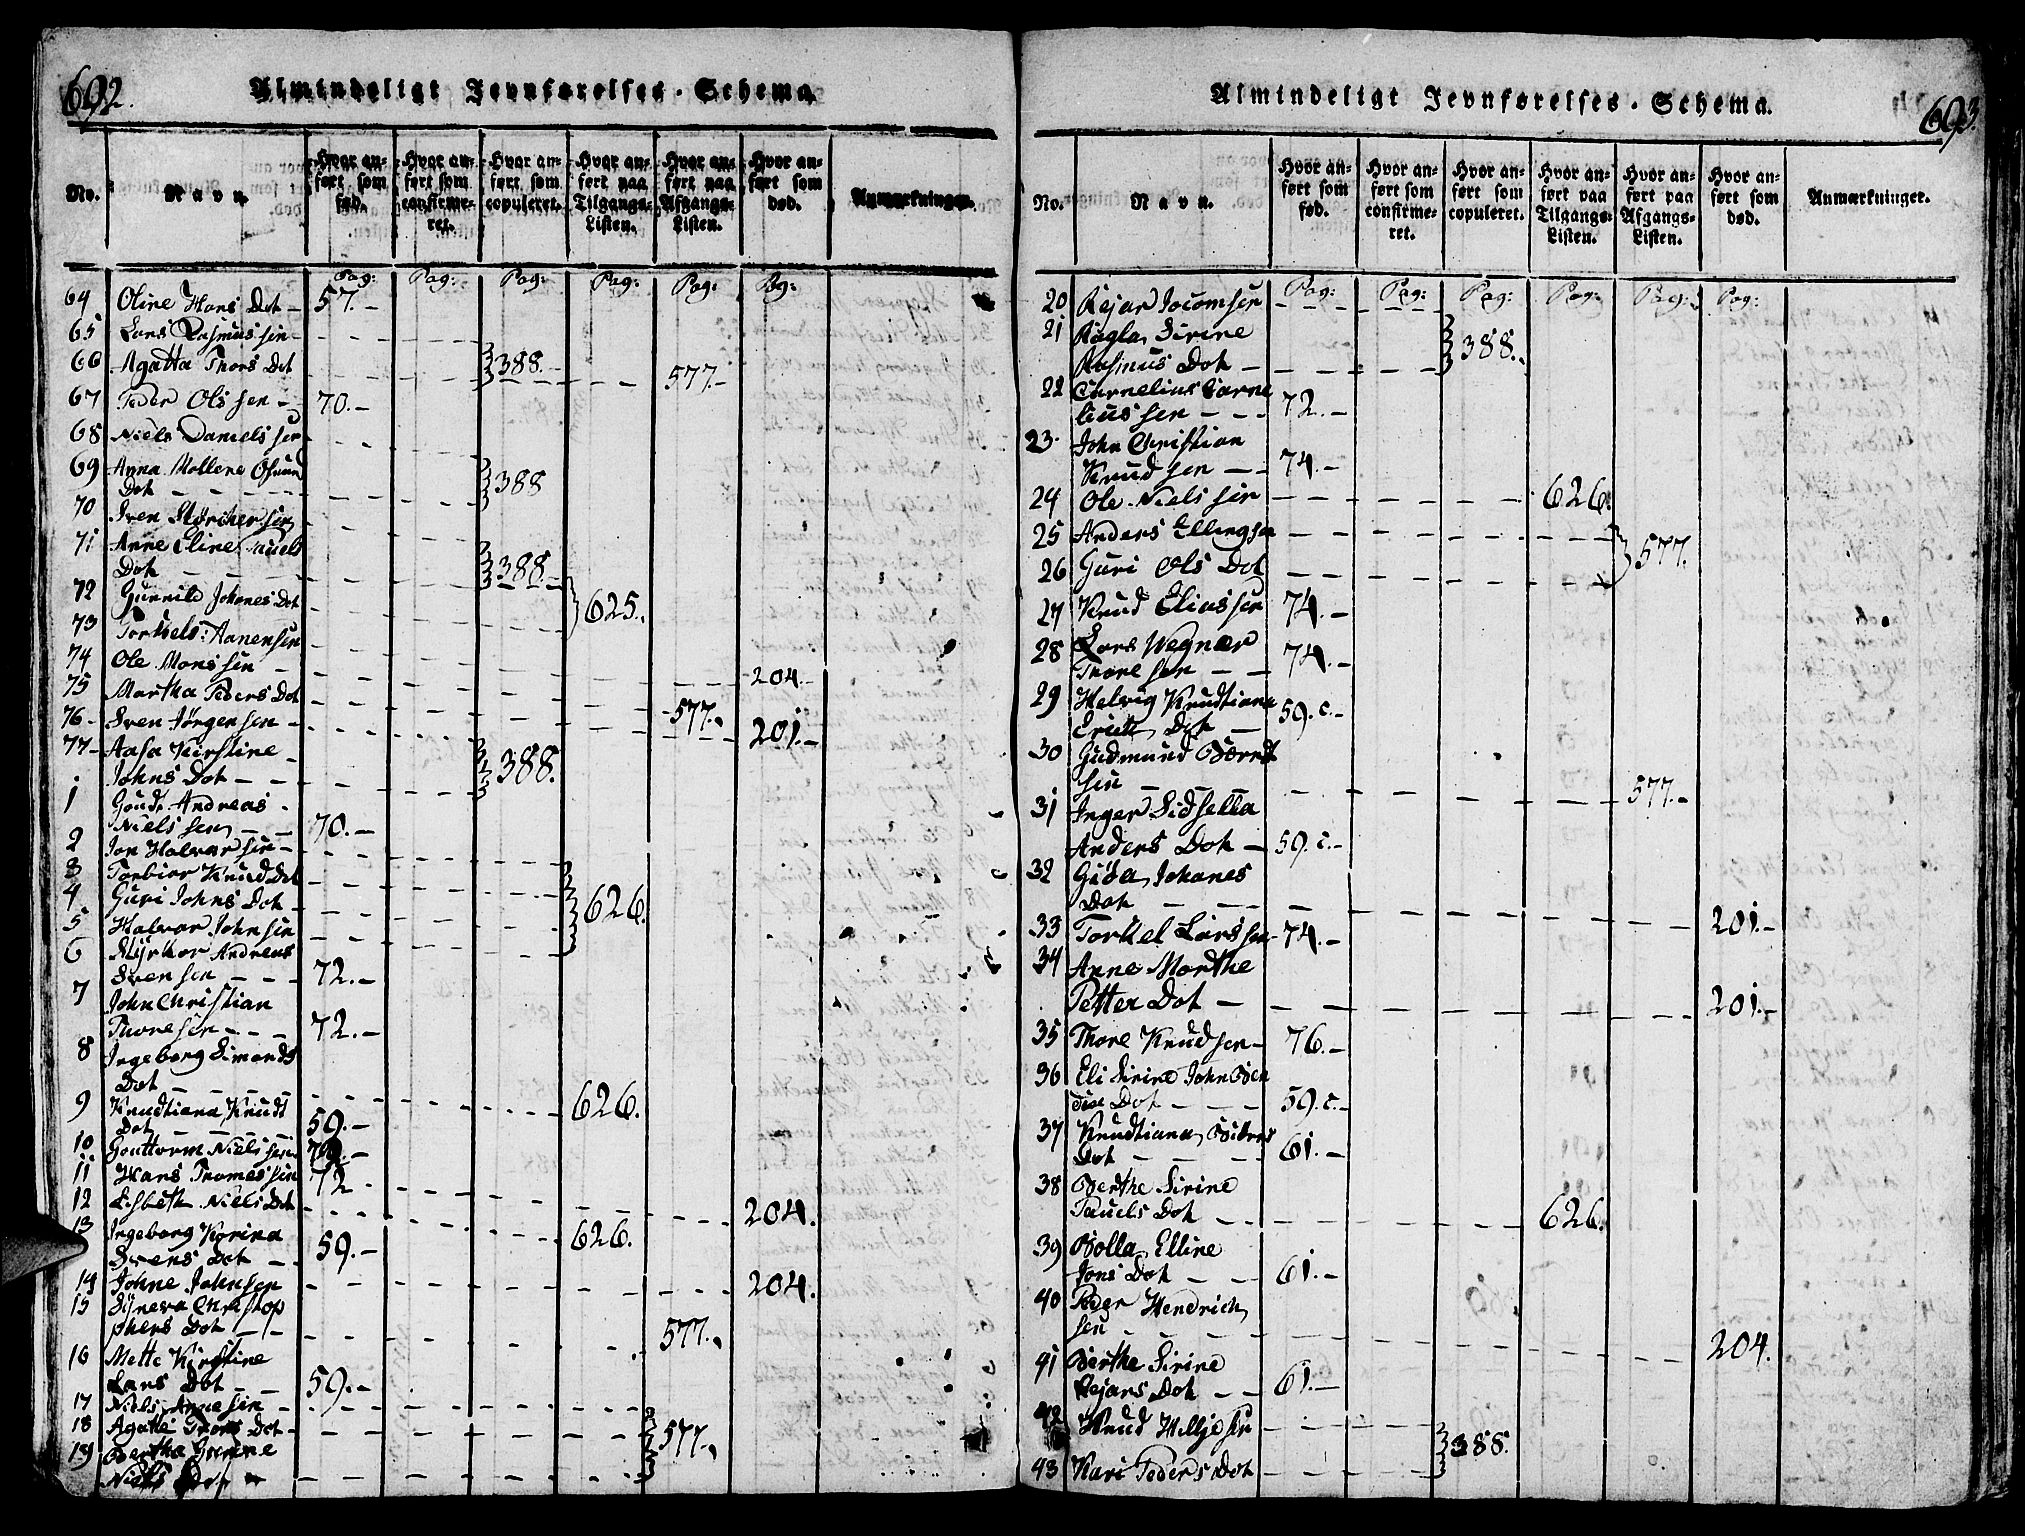 692.
Almindeligt Jevnførelses-Schema
No. Navn. Hvor anført som fød. Hvor anført som confirmeret. Hvor anført som copuleret. Hvor anført paa Tilgangs-Listen. Hvor anført paa Afgangs-Listen. Hvor anført som død. Anmærkninger.
Pag: Pag: Pag: Pag: Pag: Pag:
64 Oline Hans Dot – 57. –
65 Lars Rasmussen –
66 Agatta Thors Dot 388. – 577. –
67 Peder Olssen – 70. –
68 Niels Danielssen
69 Anna Mallene
Dot – – 388
70 Iven
71 Anne Eline
Dot – 388. –
72 Gunnild Johanes Dot 625.
73 Torkels: Aanensen
74 Ole Monssen – 204. –
75 Martha Peders Dot 577.
76 – Sven Jörgensen – 201. –
77 – Aasa Kirstine
Johns Dot – – 388.
1 Goude Andreas
Nielssen – – 70. –
2 Jon Halvorsen –
3 Torbior Knud Dot
4 Guri Johns Dot – 626.
5 Halvor Johnsen
6 Andreas
Svensen – – – 72. –
7 John Christian
Thoresen – – – 72. –
8 Ingeborg Simonds
Dot – – 626.
9 Knudtiana Knudt
Dot 59. –
10 Gouttorm Nielssen
11 Hans Tromessen 72
12 Lisbeth Niels Dot 204.
13 Ingeborg Karina 626.
Svens Dot – – 59. –
14 Johne Johnsen 204.
15 Syneva Christop
phers Dot – – 577.
16 Mette Kirstine
Lars Dot – – 59. –
17 Niels Annesen –
18 Agathe Thors Dot – 577.
19 Bertha Gurine
Niels Dot
693.
Almindeligt Jevnførelses-Schema.
No. Navn. Hvor anført som fød. Hvor anført som confirmeret. Hvor anført som copuleret. Hvor anført paa Tilgangs-Listen. Hvor anført paa Afgangs-Listen. Hvor anført som død. Anmærkninger.
Pag: Pag: Pag: Pag: Pag: Pag:
20 Rejar Jocomsen
21 Ragla Sirine 388.
Rasmus Dot –
22 Cornelius Corne
liussen – – – 72. –
23. John Christian
Knudsen – – 74. –
24 Ole Nielssen 626.
25 Anders Ellingsen
26 Guri Ols Dot 577.
27 Knud Eliassen 74. –
28 Lars Wegner
Thoresen – – 74. –
29 Helvig Knudtiana
Erich Dot – 59. c. –
30 Gudmund Berndt
sen – 577. –
31 Inger Sidsella
Anders Dot – 59. c. –
32 Giða Johanes
Dot – – – 201. –
33 Torkel Larssen 74. –
34 Anne Marthe
Petter Dot – 201. –
35 Thore Knudsen – 76. –
36 Eli Sirine John
Dot – – – 59. c. –
37 Knudtiana
Dot – – – 61. –
38 Berthe Sirine
Pauels Dot – – 626.
39 Bolla Elline
Jons Dot – – 61. –
40 Peder Hendrich
sen 204.
41 Berthe Sirine
Rejars Dot – – 61. –
42 Knud Helljesen 388.
43 Kari Peders Dot